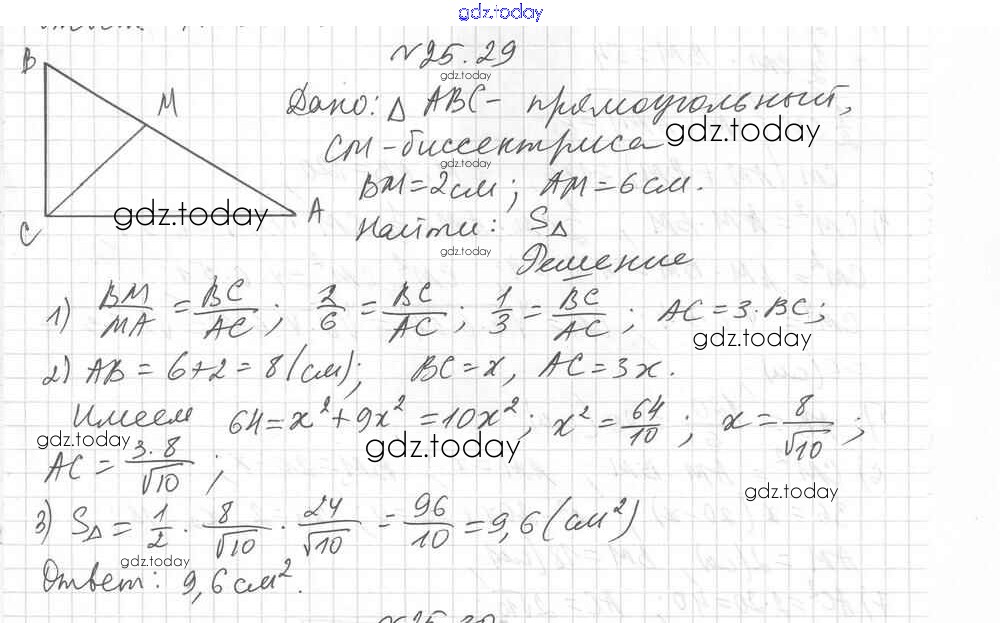 gdz.today
№25.29
gdz.today
B
M
A
C
Дано: △ ABC - прямоугольный,
gdz.today
CM - биссектриса
gdz.today
BM = 2см; AM = 6см.
gdz.today
Найти: S△
gdz.today
Решение
1) BM/MA = BC/AC; 2/6 = BC/AC; 1/3 = BC/AC; AC = 3·BC;
gdz.today
2) AB = 6+2 = 8 (см); BC = x, AC = 3x.
Имеем 64 = x² + 9x² = 10x²; x² = 64/10; x = 8/√10;
gdz.today
gdz.today
AC = 3·8/√10;
gdz.today
3) S△ = 1/2 · 8/√10 · 24/√10 = 96/10 = 9,6 (см²)
gdz.today
Ответ: 9,6 см².
№25.30